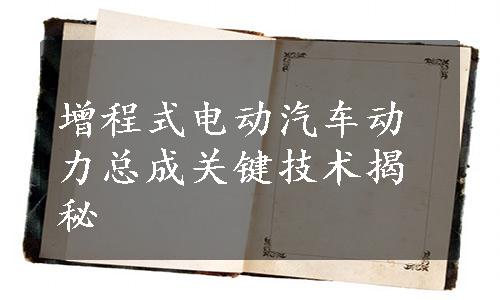 增程式电动汽车动
力总成关键技术揭
秘